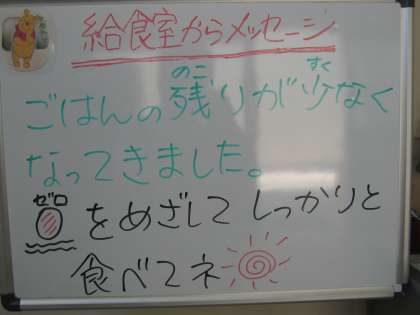 給食室からメッセージ
ごはんの残りが少なく
のこ すく
なってきました。
ゼロ
0をめざして しっかりと
食べてネ